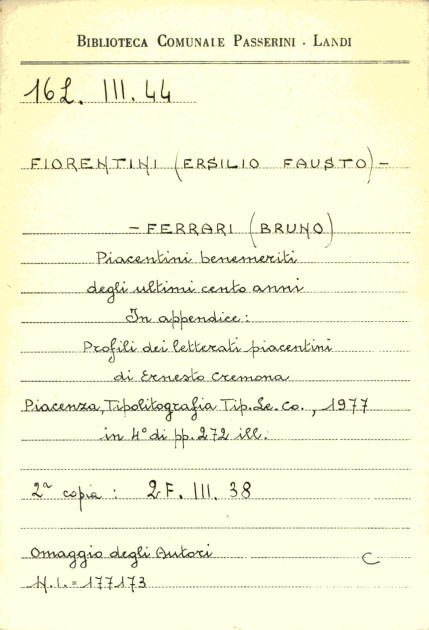 BIBLIOTECA COMUNALE PASSERINI - LANDI
16L. III. 44
FIORENTINI (ERSILIO FAUSTO) -
- FERRARI (BRUNO)
Piacentini benemeriti
degli ultimi cento anni
In appendice:
Profili dei letterati piacentini
di Ernesto Cremona
Piacenza, Tipolitografia Tip.Le.Co., 1977
in 4° di pp. 272 ill.
2ª copia : 2F. III. 38
Omaggio degli Autori C
N.I. = 177173